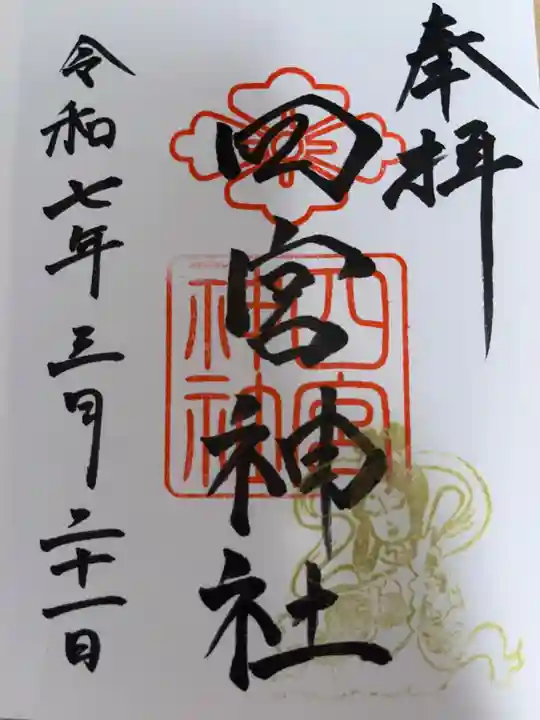 奉拝
四宮神社
四宮神社
令和七年三月二十一日